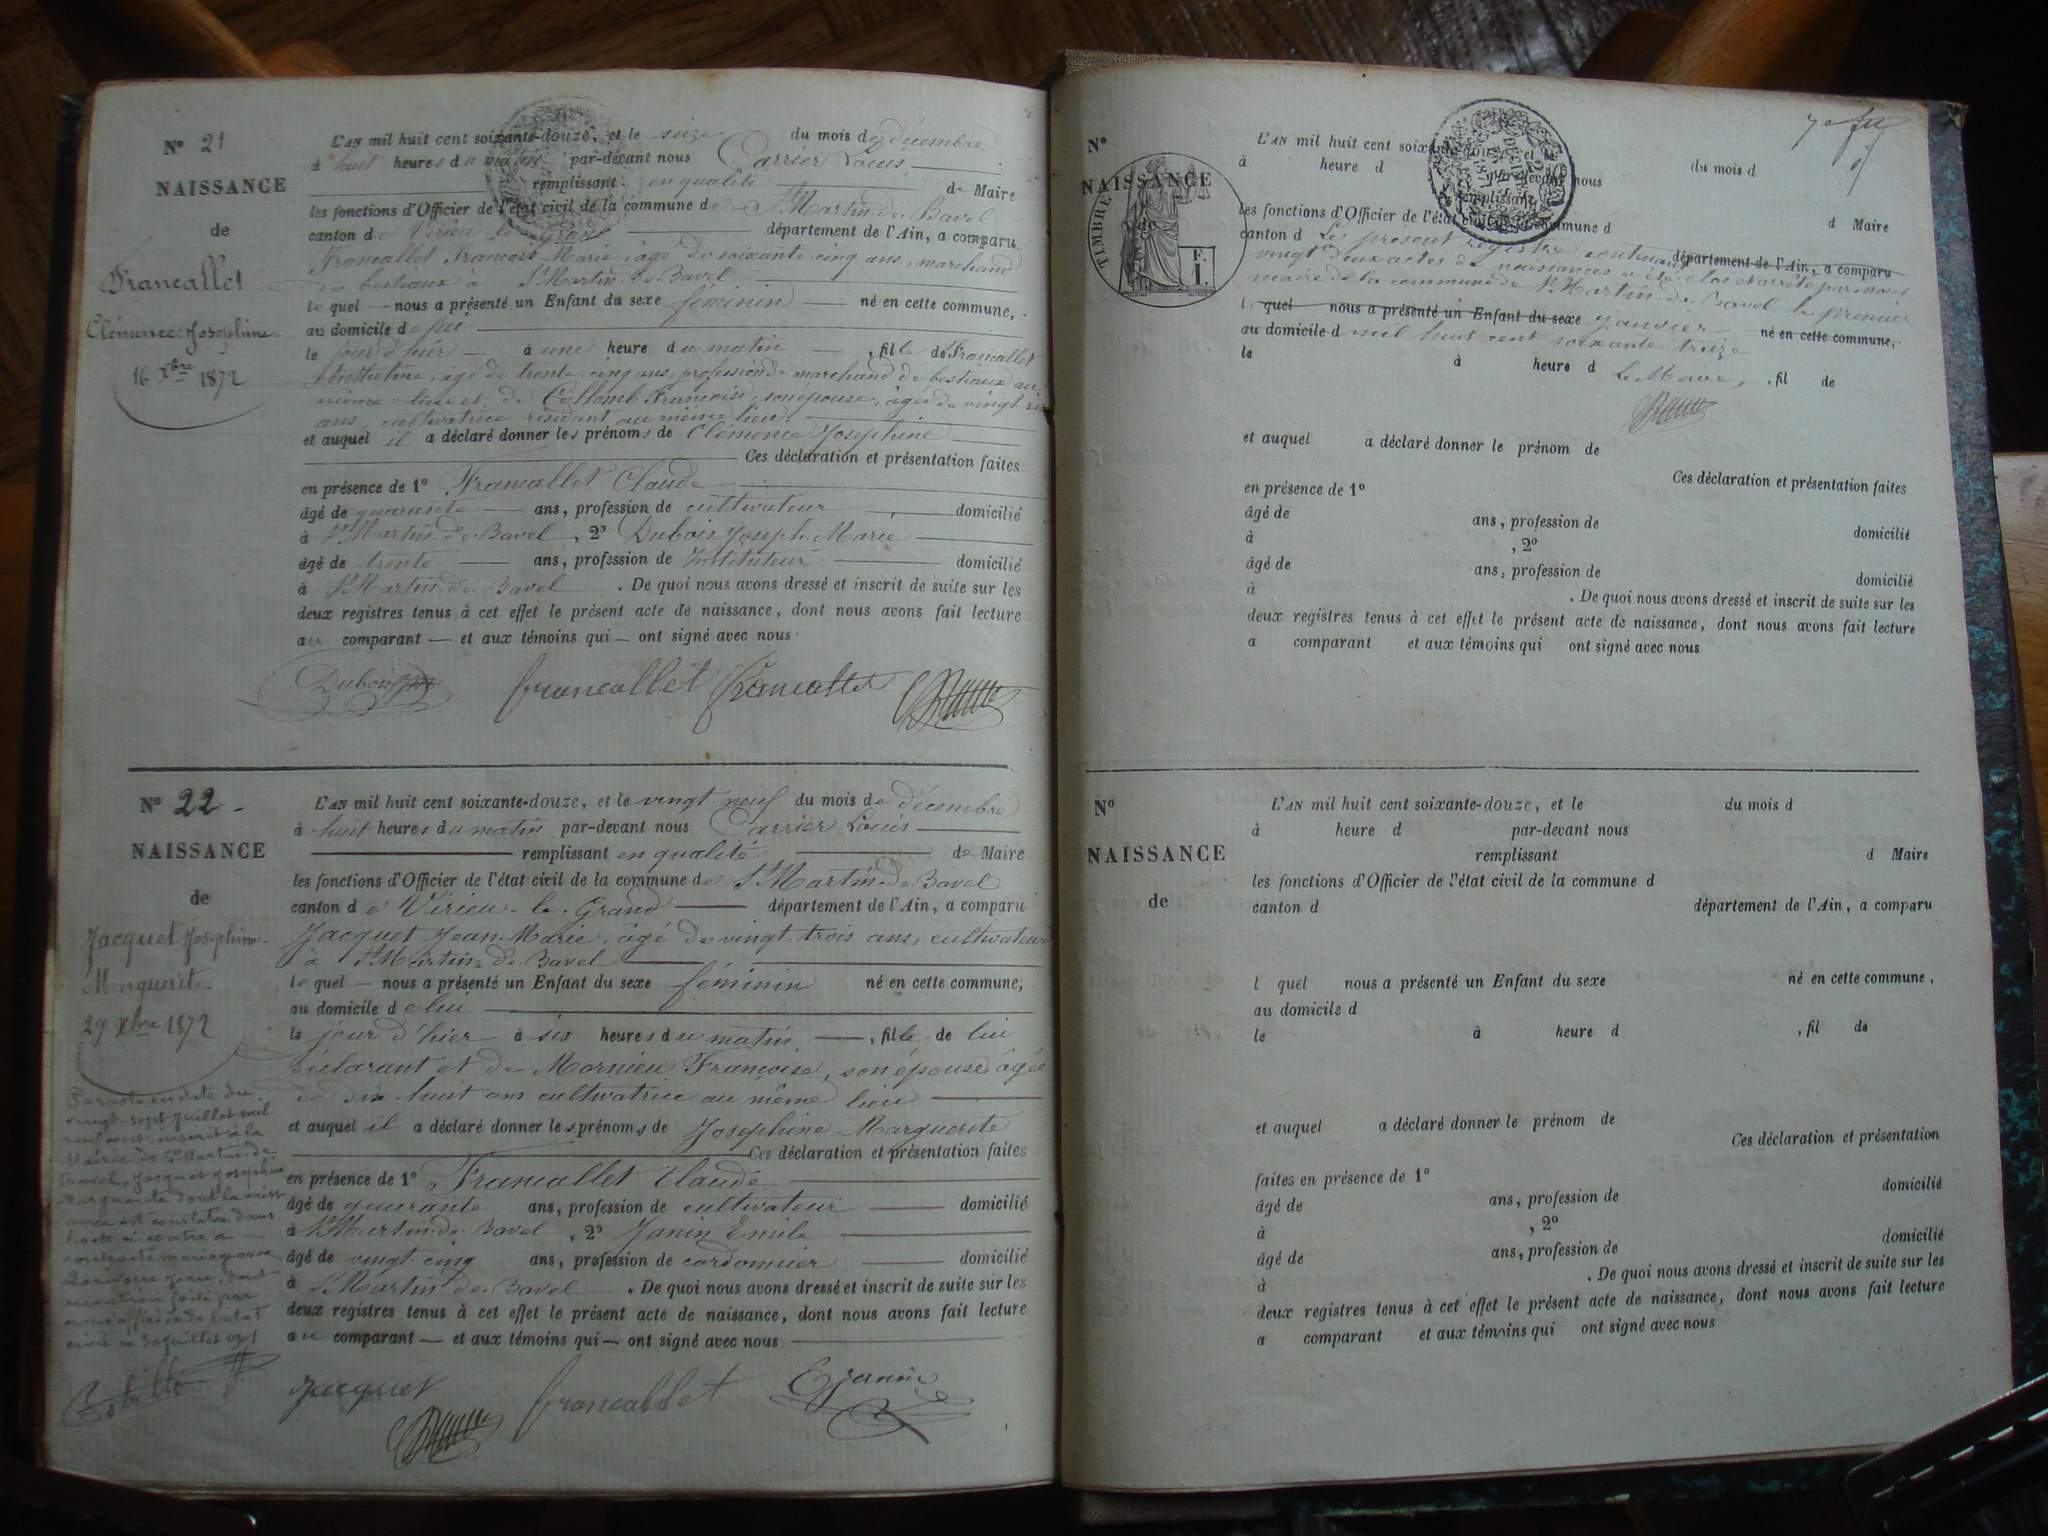 N° 21
NAISSANCE
de
Francallet
Clémence Josephine
16 Xbre 1872
L'AN mil huit cent soixante-douze, et le seize du mois de décembre
à huit heures du matin par-devant nous Carrier Louis
remplissant en qualité de Maire
les fonctions d'Officier de l'état civil de la commune de St Martin de Bavel
canton de Virieu le Grand département de l'Ain, a comparu
Francallet François Marie, âgé de soixante cinq ans, marchand
de bestiaux à St Martin de Bavel
lequel nous a présenté un Enfant du sexe féminin né en cette commune,
au domicile de
le jour d'hier à une heure du matin, fille de Francallet
Anthelme, âgé de trente cinq ans, profession de marchand de bestiaux au
même lieu et de Collomb Françoise, son épouse, âgée de vingt six
ans, cultivatrice résidant au même lieu.
et auquel il a déclaré donner les prénoms de Clémence Josephine
Ces déclaration et présentation faites
en présence de 1° Francallet Claude
âgé de quarante ans, profession de cultivateur domicilié
à St Martin de Bavel, 2° Dubois Joseph Marie
âgé de trente ans, profession de Instituteur domicilié
à St Martin de Bavel. De quoi nous avons dressé et inscrit de suite sur les
deux registres tenus à cet effet le présent acte de naissance, dont nous avons fait lecture
au comparant et aux témoins qui ont signé avec nous.
Dubois francallet Francallet
N° 22
NAISSANCE
de
Jacquet Josephine
Marguerite
29 Xbre 1872
L'AN mil huit cent soixante-douze, et le vingt neuf du mois de décembre
à huit heures du matin par-devant nous Carrier Louis
remplissant en qualité de Maire
les fonctions d'Officier de l'état civil de la commune de St Martin de Bavel
canton de Virieu le Grand département de l'Ain, a comparu
Jacquet Jean Marie, âgé de vingt trois ans, cultivateur
à St Martin de Bavel
lequel nous a présenté un Enfant du sexe féminin né en cette commune,
au domicile de lui
le jour d'hier à six heures du matin, fille de lui
déclarant et de Mornieu Françoise, son épouse âgée
de dix huit ans cultivatrice au même lieu
et auquel il a déclaré donner les prénoms de Josephine Marguerite
Ces déclaration et présentation faites
en présence de 1° Francallet Claude
âgé de quarante ans, profession de cultivateur domicilié
à St Martin de Bavel, 2° Janin Emile
âgé de vingt cinq ans, profession de cordonnier domicilié
à St Martin de Bavel. De quoi nous avons dressé et inscrit de suite sur les
deux registres tenus à cet effet le présent acte de naissance, dont nous avons fait lecture
au comparant et aux témoins qui ont signé avec nous
Par acte en date du
vingt-sept Juillet mil
neuf cent inscrit à la
Mairie de St Martin de
Bavel, Jacquet Josephine
Marguerite dont la naiss
ance est constatée dans
l'acte ci contre a
contracté mariage avec
Jean, dont
mention faite par
nous officier de l'état
civil le 30 juillet
Jacquet francallet E Janin
N°
NAISSANCE
de
TIMBRE
F.
1.
L'AN mil huit cent soixante-douze, et le du mois d
à heure d par-devant nous
remplissant d Maire
les fonctions d'Officier de l'état civil de la commune d
canton d département de l'Ain, a comparu
Le présent registre contenant
vingt deux actes de naissances a été clos et arrêté par nous
maire de la commune de St Martin de Bavel le premier
l quel nous a présenté un Enfant du sexe janvier né en cette commune,
au domicile d mil huit cent soixante treize
le à heure d, fil de
Le Maire,
et auquel a déclaré donner le prénom de
Ces déclaration et présentation faites
en présence de 1°
âgé de ans, profession de domicilié
à , 2°
âgé de ans, profession de domicilié
à . De quoi nous avons dressé et inscrit de suite sur les
deux registres tenus à cet effet le présent acte de naissance, dont nous avons fait lecture
a comparant et aux témoins qui ont signé avec nous
N°
NAISSANCE
de
L'AN mil huit cent soixante-douze, et le du mois d
à heure d par-devant nous
remplissant d Maire
les fonctions d'Officier de l'état civil de la commune d
canton d département de l'Ain, a comparu
l quel nous a présenté un Enfant du sexe né en cette commune,
au domicile d
le à heure d , fil de
et auquel a déclaré donner le prénom de
Ces déclaration et présentation
faites en présence de 1°
âgé de ans, profession de domicilié
à , 2°
âgé de ans, profession de domicilié
à . De quoi nous avons dressé et inscrit de suite sur les
deux registres tenus à cet effet le présent acte de naissance, dont nous avons fait lecture
a comparant et aux témoins qui ont signé avec nous